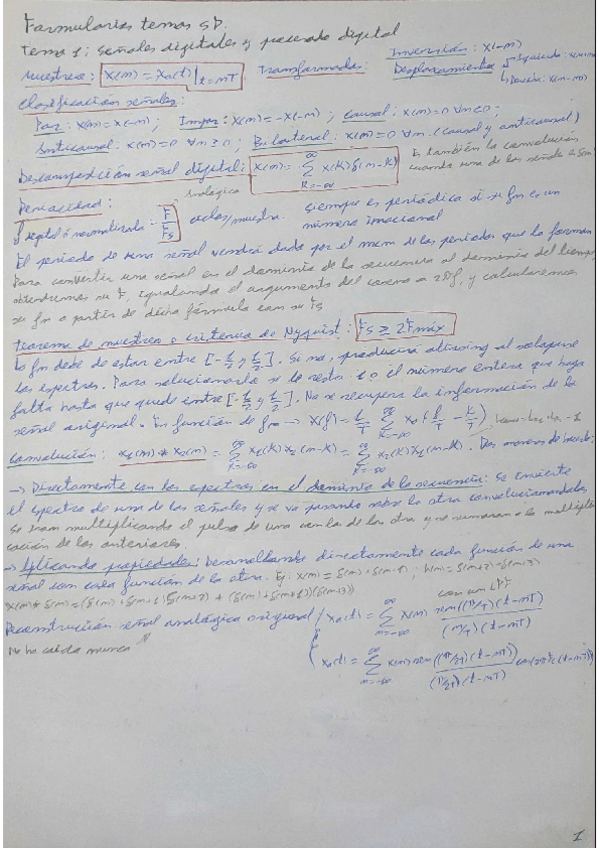 Formularios temas SD.
Tema 1: Señales digitales y procesado digital
Muestreo: x(m) = xa(t)|t=mT Transformada: Inversión: x(-m)
Desplazamiento Izquierda: x(m+m)
Derecha: x(m-m)
Clasificación señales:
Par: x(m)=x(-m); Impar: x(m)=-x(-m); causal: x(m)=0 ∀m<0;
Anticausal: x(m)=0 ∀m≥0; Bilateral: x(m)≠0 ∀m. (causal y anticausal)
Descomposición señal digital: x(m) = ∞ Σ k=-∞ x(k)δ(m-k) Es también la convolución
cuando una de las señale a
Periocidad: analógica
f digital ó normalizada = F/Fs ciclos/muestra. siempre es periódica si su fm es un
número irracional
El periodo de una señal vendrá dado por el mcm de los periodos que la forman
Para convertir una señal en el dominio de la secuencia al dominio del tiempo
obtendremos su F, igualando el argumento del coseno a 2πf, y calcularemos
su fm a partir de dicha fórmula con su Fs
Teorema de muestreo o criterio de Nyquist: Fs ≥ 2Fmáx
La fm debe de estar entre [-1/2 y 1/2]. Si no, producirá aliasing al solaparse
los espectros. Para solucionarlo se le resta 1 o el número entero que haga
falta hasta que quede entre [-1/2 y 1/2]. No se recupera la información de la
señal original. En función de fm → X(f) = 1/T ∞ Σ k=-∞ Xa(f/T - k/T)
Convolución: x1(m) * x2(m) = ∞ Σ k=-∞ x1(k)x2(m-k) = ∞ Σ k=-∞ x2(k)x1(m-k). Dos maneras de hacerlo:
→ Directamente con los espectros en el dominio de la secuencia: Se invierte
el espectro de una de las señales y se va pasando sobre la otra convolucionandolas,
se iran multiplicando el pulso de una con la de la otra y se sumaran a la multipli
cación de las anteriores.
→ Aplicando propiedades: Desarrollando directamente cada función de una
señal con cada función de la otra. Ej:
Reconstrucción señal analógica original con un LPF
xa(t) = ∞ Σ m=-∞ x(m) sen((π/T)(t-mT)) / (π/T)(t-mT)
No ha caído nunca
xa(t) = ∞ Σ m=-∞ x(m) sen((π/2T)(t-mT)) / (π/2T)(t-mT)
1